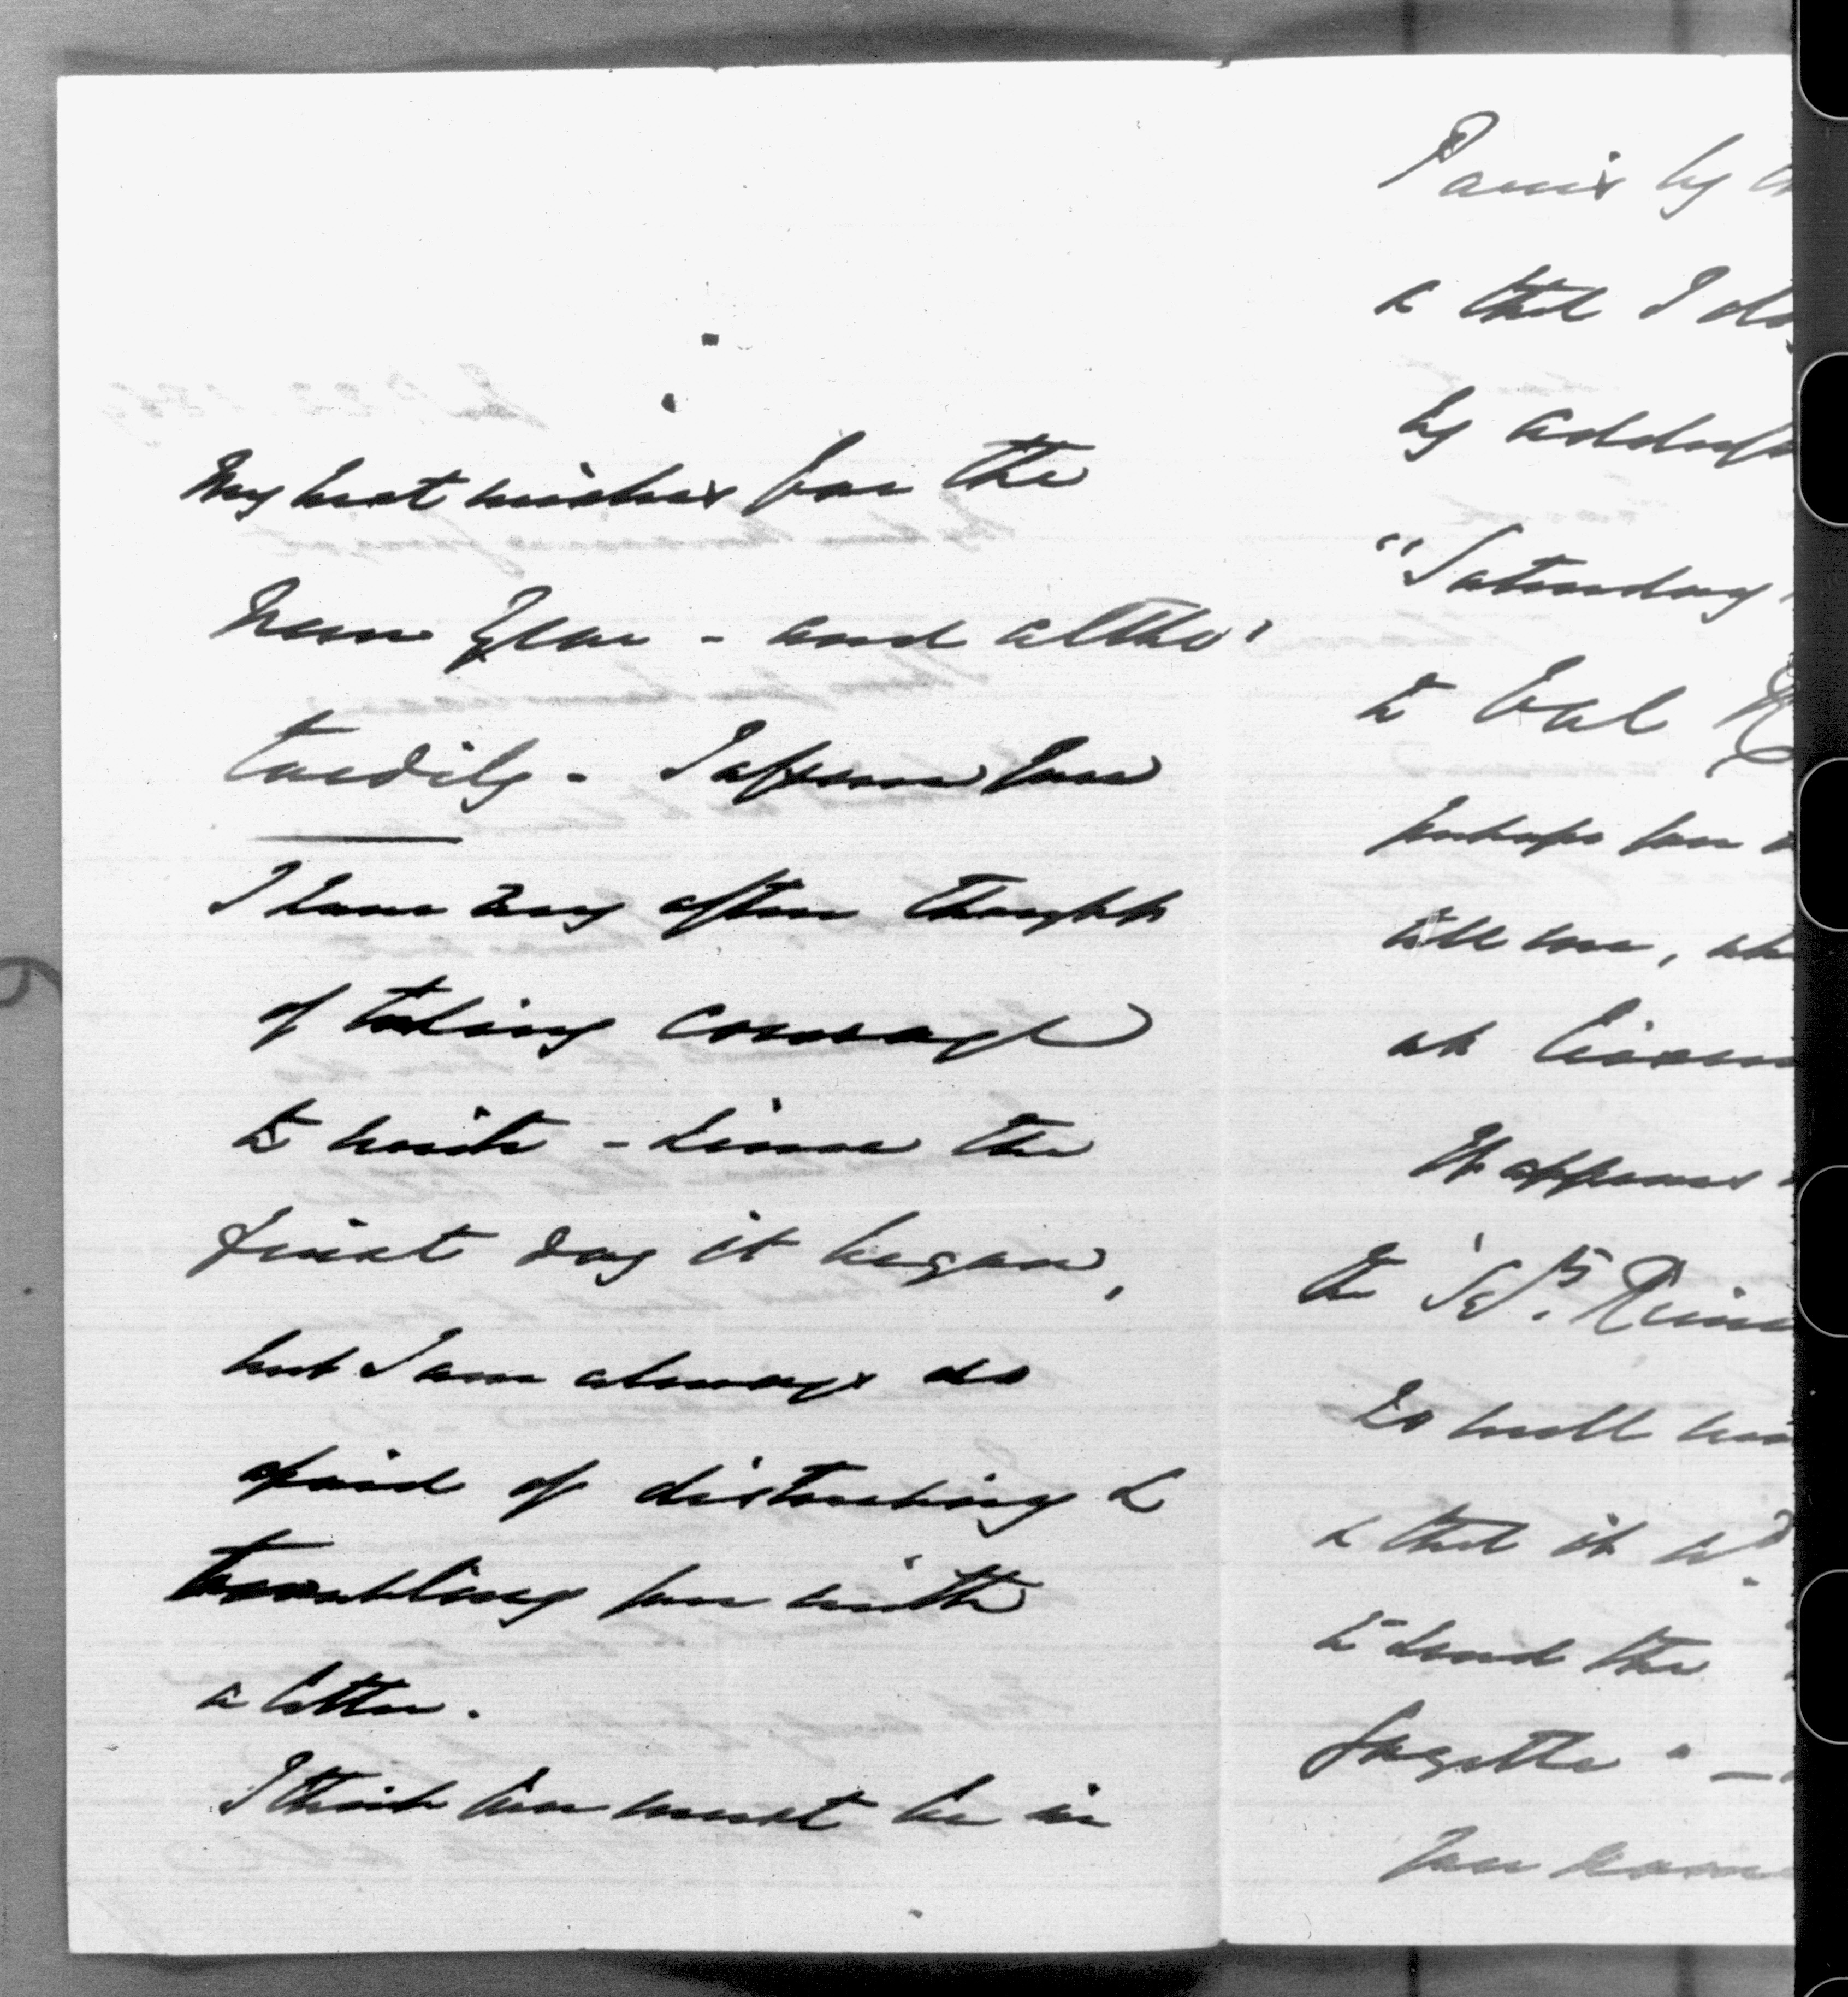 My best wishes for the
New Year - and altho'
tardily - I assure you
I have very often thought
of taking courage
to write - since the
first day it began,
but I am always so
afraid of disturbing &
troubling you with
a letter.
I think you must be in
Paris by
& that I
by
"Saturday
to Col
perhaps you
tell me,
at
It appears
the
so well
& that it wd.
to send the
Gazette" -
You know